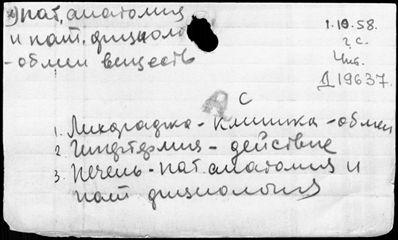 э)пат, анатомия
и пат. физиоло
- обмен веществ
1.10.58.
г. с.
Чит.
Д19637.
А С
1. Лихорадка - клиника - обмен
2 Гипертермия - действие
3. Печень - пат. анатомия и
пат физиология